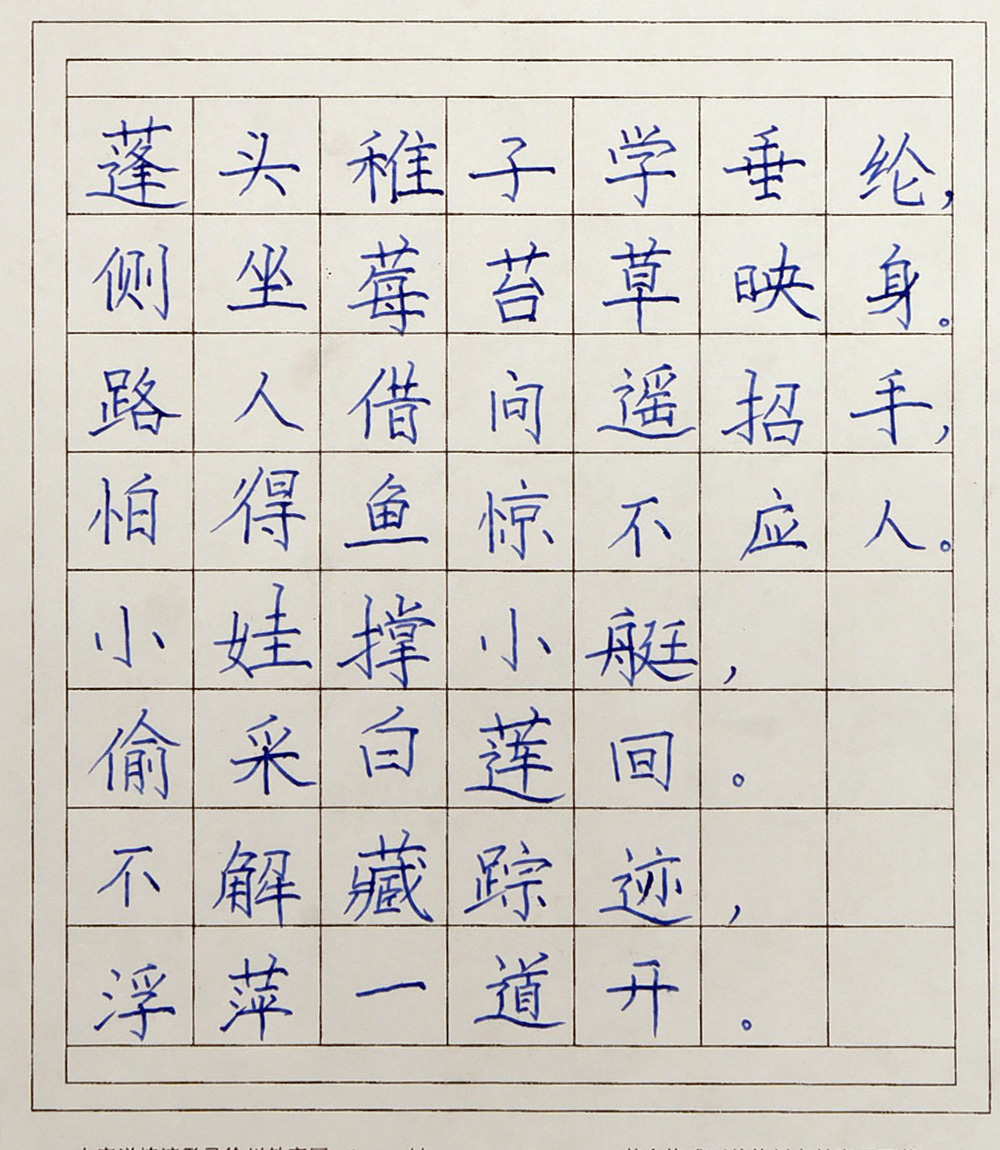 蓬头稚子学垂纶，
侧坐莓苔草映身。
路人借问遥招手，
怕得鱼惊不应人。
小娃撑小艇，
偷采白莲回。
不解藏踪迹，
浮萍一道开。